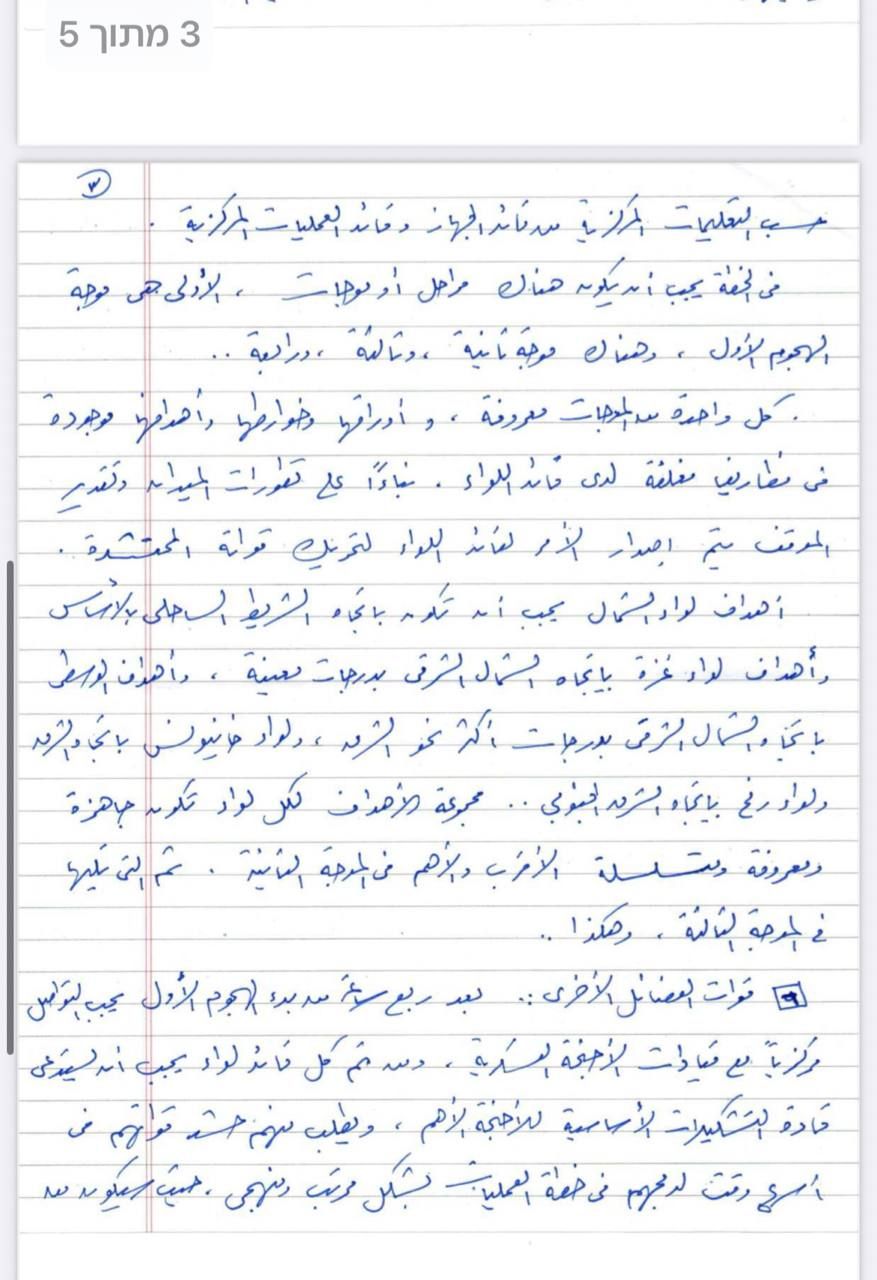 3 מתוך 5
٣
حسب التعليمات المركزية من قائد الجهاز وقائد العمليات المركزية .
في الخطة يجب أن يكون هناك مراحل أو موجات ، الأولى هي موجة
الهجوم الأول ، وهناك موجة ثانية ، وثالثة ، ورابعة ..
. كل واحدة من الموجات معروفة ، و أوراقها وخوارطها وأهدافها موجودة
في مظاريف مغلقة لدى قائد اللواء . بناءً على تطورات الميدان وتقدير
الموقف يتم إصدار الأمر لقائد اللواء لتحريك قواته المحتشدة .
أهداف لواء الشمال يجب أن تكون باتجاه الشريط الساحلي بالأساس
وأهداف لواء غزة باتجاه الشمال الشرقي بدرجات معينة ، وأهداف الوسطى
باتجاه الشمال الشرقي بدرجات أكثر نحو الشرق ، ولواء خانيونس باتجاه الشرق
ولواء رفح باتجاه الشرق الجنوبي .. مجموعة الأهداف لكل لواء تكون جاهزة
ومعروفة ومتسلسلة الأقرب والأهم في الموجة الثانية . ثم التي تليها
في الموجة الثالثة ، وهكذا ..
قوات الفصائل الأخرى :. بعد ربع ساعة من بدء الهجوم الأول يجب التواصل
مركزياً مع قيادات الأجنحة العسكرية ، ومن ثم كل قائد لواء يجب أن يستدعي
قادة التشكيلات الأساسية للأجنحة الأهم ، ويطلب منهم حشد قواتهم في
أسرع وقت لدمجهم في خطة العمليات بشكل مرتب ومنهجي ، حيث سيكون من